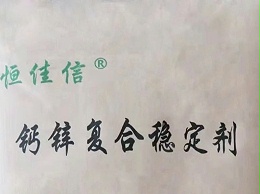 恒佳信®
钙锌复合稳定剂